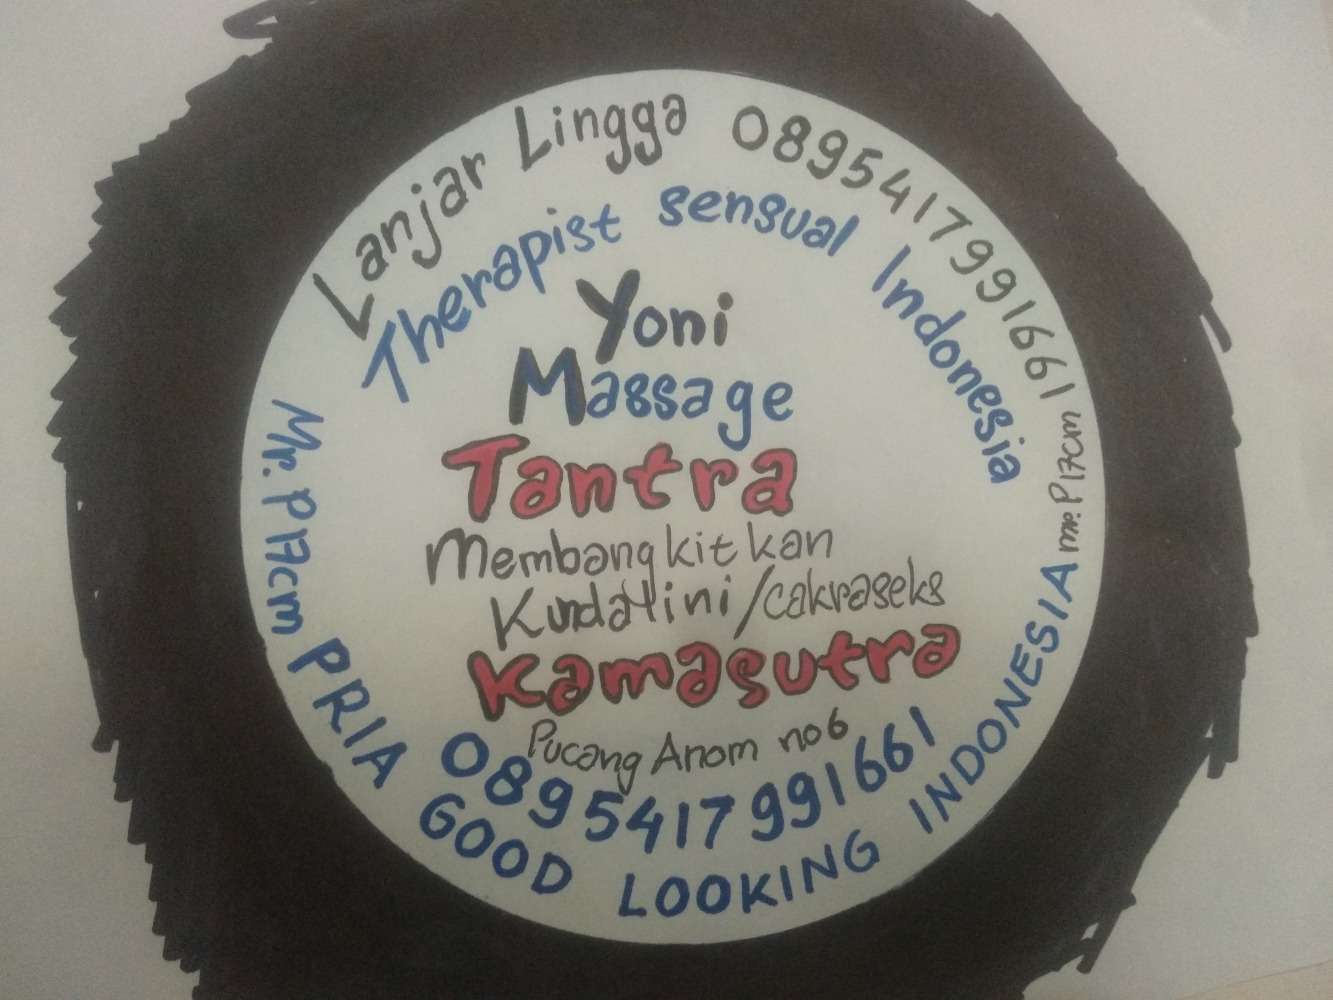 Lanjar Lingga 0895417991661 mr.P17cm
Therapist sensual Indonesia
Yoni
Massage
Tantra
Membangkitkan
Kundalini/cakraseks
Kamasutra
Pucang Anom no6
0895417991661
Mr.P17cm PRIA GOOD LOOKING INDONESIA